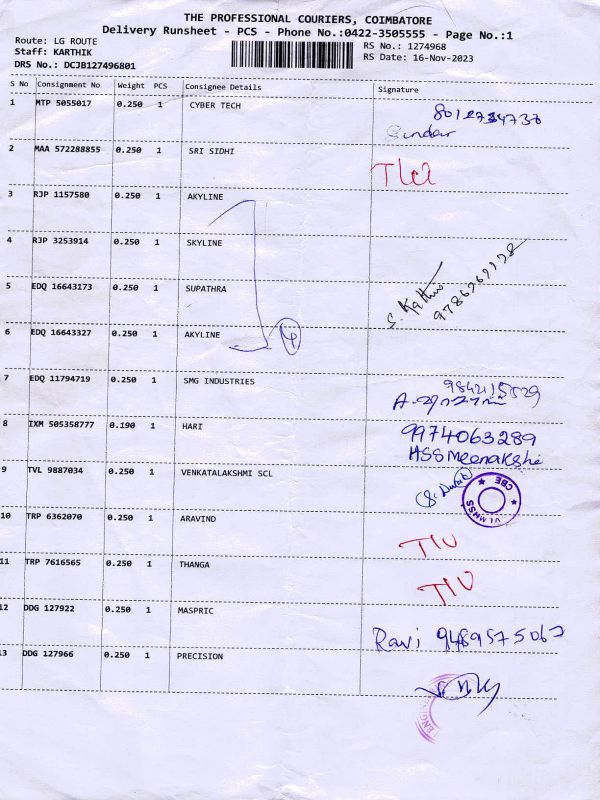 THE PROFESSIONAL COURIERS, COIMBATORE
Delivery Runsheet - PCS - Phone No.:0422-3505555 - Page No.:1
Route: LG ROUTE
Staff: KARTHIK
DRS No.: DCJB127496801
RS No.: 1274968
RS Date: 16-Nov-2023
S No Consignment No Weight PCS Consignee Details Signature
1 MTP 5055017 0.250 1 CYBER TECH
2 MAA 572288855 0.250 1 SRI SIDHI
3 RJP 1157580 0.250 1 AKYLINE
4 RJP 3253914 0.250 1 SKYLINE
5 EDQ 16643173 0.250 1 SUPATHRA
S. Kathir
9786262128
6 EDQ 16643327 0.250 1 AKYLINE
4
7 EDQ 11794719 0.250 1 SMG INDUSTRIES
8 IXM 505358777 0.190 1 HARI 9974063289
HSS Meenakshi
9 TVL 9887034 0.250 1 VENKATALAKSHMI SCL
VLMHSS CBE
10 TRP 6362070 0.250 1 ARAVIND
11 TRP 7616565 0.250 1 THANGA
12 DDG 127922 0.250 1 MASPRIC Ravi 9489575067
13 DDG 127966 0.250 1 PRECISION